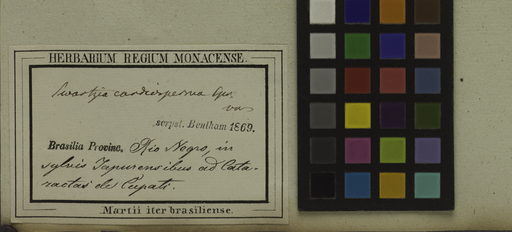 HERBARIUM REGIUM MONACENSE.
Swartzia cardiosperma Spr.
var
scrpst. Bentham 1869.
Brasilia Provinc. Rio Negro, in
sylvis Japurensibus ad Cata-
ractas de Cupati.
Martii iter brasiliense.